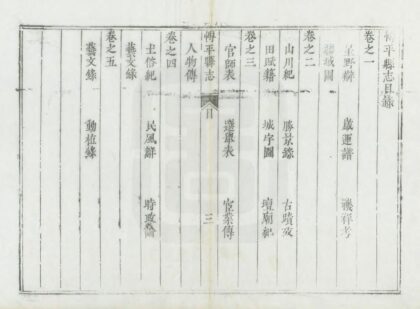 茌平縣志目錄
卷之一
星野辯 歲運譜 禨祥考
疆域圖
卷之二
山川紀 勝景錄 古蹟攷
田賦籍 城宇圖 壇廟紀
卷之三
官師表 選舉表 宦業傳
茌平縣志 目 三
人物傳
卷之四
土俗紀 民風解 時政論
藝文錄
卷之五
藝文錄 動植錄